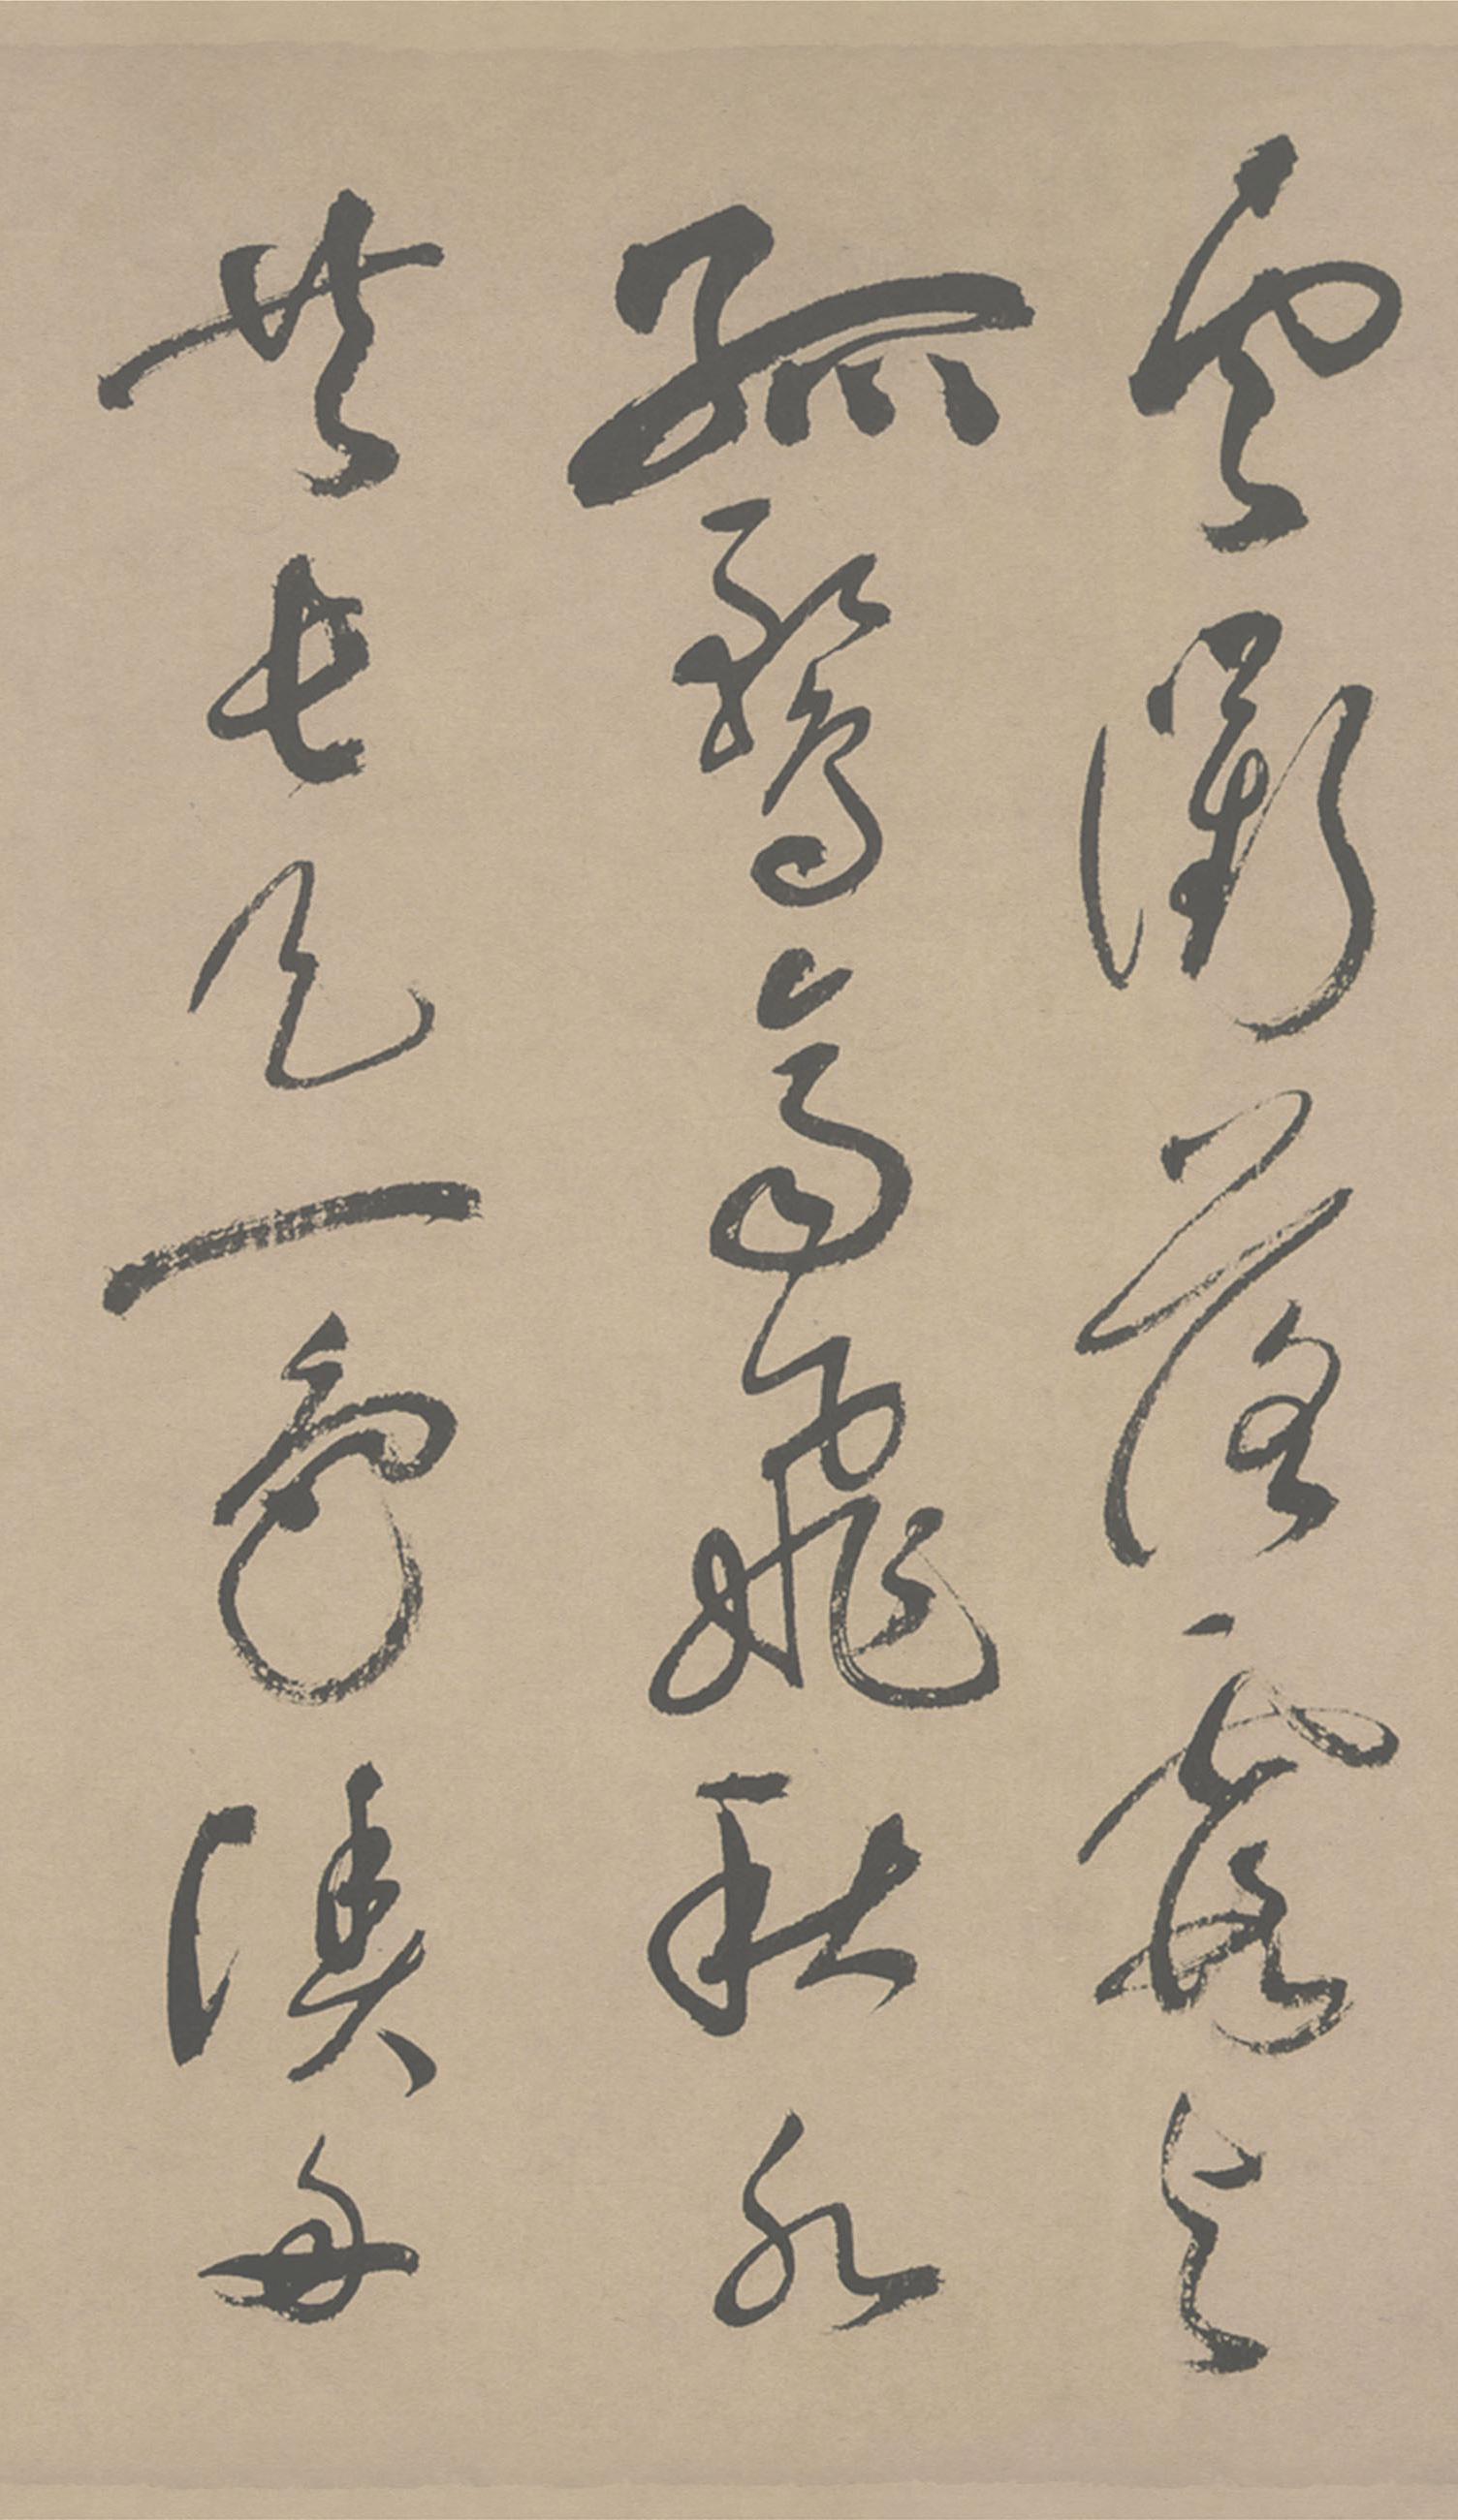 雲衢落霞与
孤鶩齊飛秋水
共長天一色漁舟